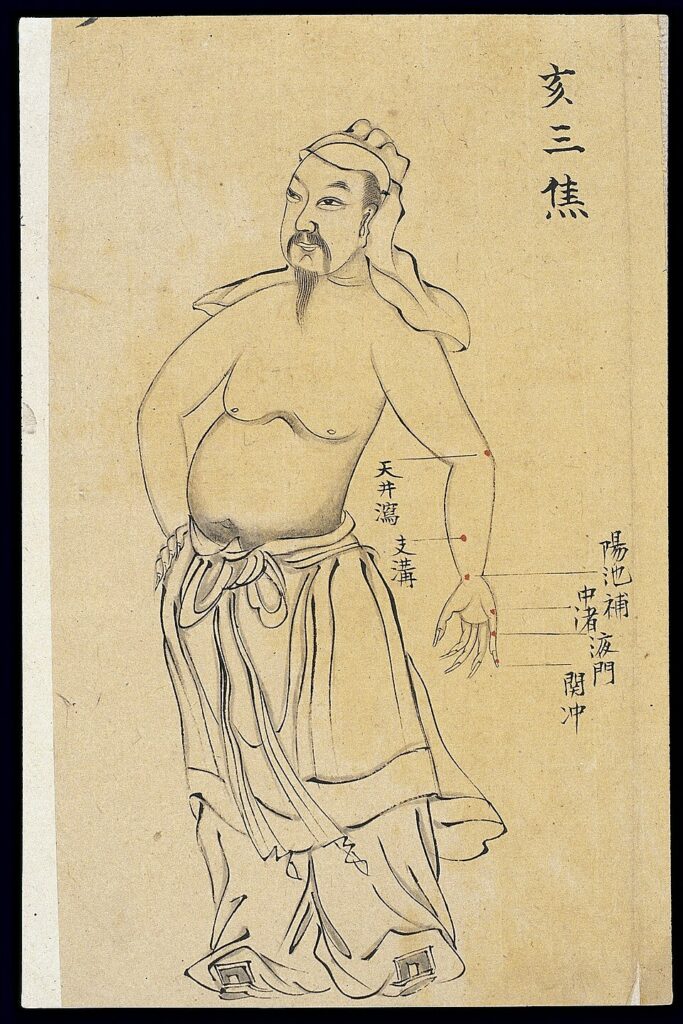 亥三焦
天井瀉
支溝
陽池補
中渚
液門
関冲